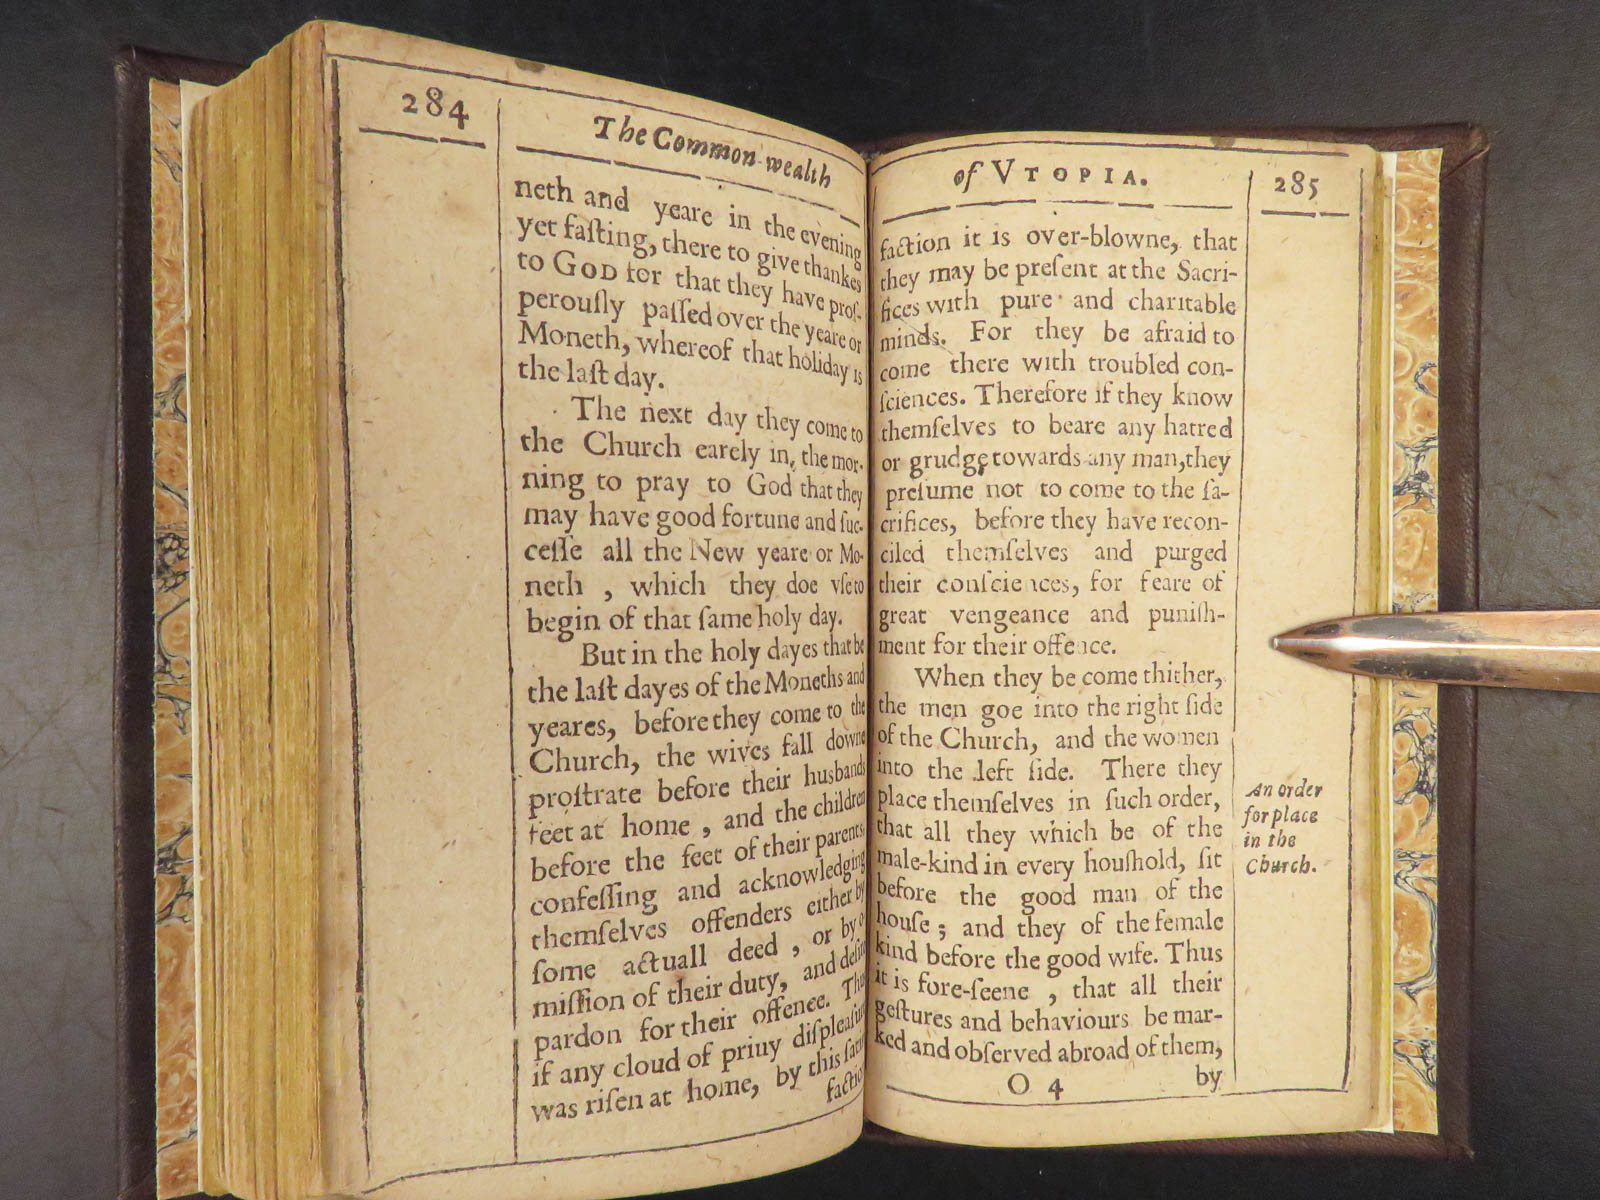 284
The Common-wealth
neth and yeare in the evening
yet faſting, there to give thankes
to GOD for that they have proſ-
perouſly paſſed over the yeare or
Moneth, whereof that holiday is
the laſt day.
The next day they come to
the Church earely in, the mor-
ning to pray to God that they
may have good fortune and ſuc-
ceſſe all the New yeare or Mo-
neth , which they doe vſe to
begin of that ſame holy day.
But in the holy dayes that be
the laſt dayes of the Moneths and
yeares, before they come to the
Church, the wives fall downe
proſtrate before their husbands
feet at home , and the children
before the feet of their parents,
confeſſing and acknowledging
themſelves offenders either by
ſome actuall deed , or by
miſſion of their duty, and
pardon for their offence.
if any cloud of priuy diſpleaſure
was riſen at home, by this ſatiſ
faction
of VTOPIA.
285
faction it is over-blowne, that
they may be preſent at the Sacri-
fices with pure and charitable
minds. For they be afraid to
come there with troubled con-
ſciences. Therefore if they know
themſelves to beare any hatred
or grudge towards any man, they
preſume not to come to the ſa-
crifices, before they have recon-
ciled themſelves and purged
their conſciences, for feare of
great vengeance and puniſh-
ment for their offence.
When they be come thither,
the men goe into the right ſide
of the Church, and the women
into the left ſide. There they
place themſelves in ſuch order,
that all they which be of the
male-kind in every houſhold, ſit
before the good man of the
houſe ; and they of the female
kind before the good wife. Thus
it is fore-ſeene , that all their
geſtures and behaviours be mar-
ked and obſerved abroad of them,
O 4
by
An order
for place
in the
Church.